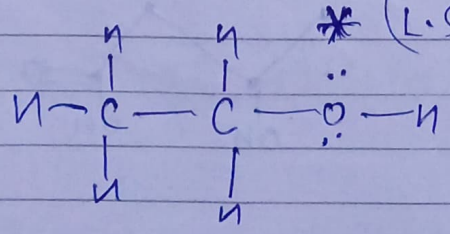 H H * (L.
H — C — C — Ö — H
H H